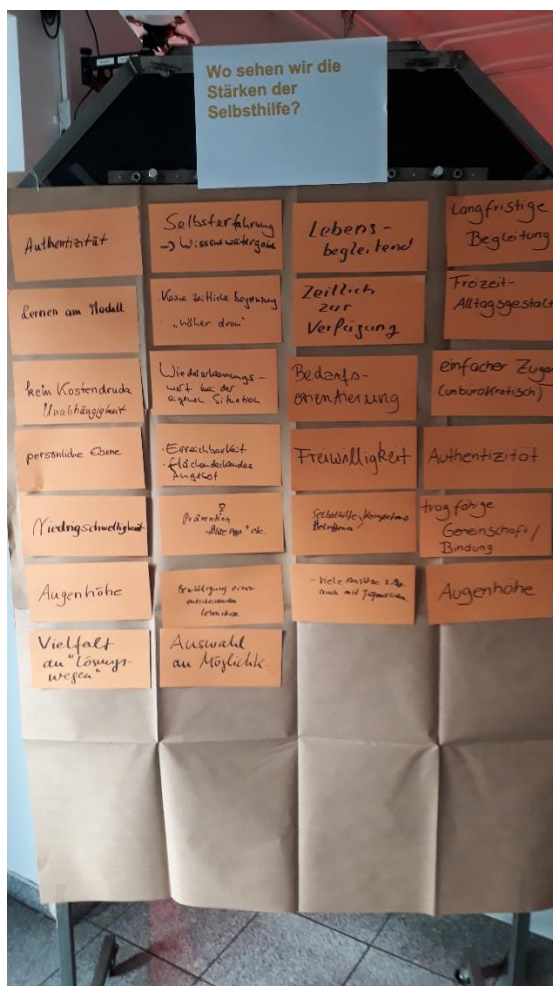 Wo sehen wir die
Stärken der
Selbsthilfe?
Authentizität
Lernen am Modell
kein Kostendruck
Unabhängigkeit
persönliche Ebene
Niedrigschwelligkeit
Augenhöhe
Vielfalt
an "Lösungs-
wegen"
Selbsterfahrung
→ Wissensweitergabe
Keine zeitliche Begrenzung
· "näher dran"
Wiedererkennungs-
wert bei der
eigenen Situation
· Erreichbarkeit
· flächendeckendes
Angebot
Prävention
etc.
Bewältigung einer
entscheidenden
Auswahl
an Möglichk.
Lebens-
begleitend
Zeitlich
zur
Verfügung
Bedarfs-
orientierung
Freiwilligkeit
Selbsthilfe, Kompetenz
Betroffener
- viele
auch mit Jugendlichen
Langfristige
Begleitung
Freizeit-
Alltagsgestalt
einfacher Zugan
(unbürokratisch)
Authentizität
tragfähige
Gemeinschaft/
Bindung
Augenhöhe